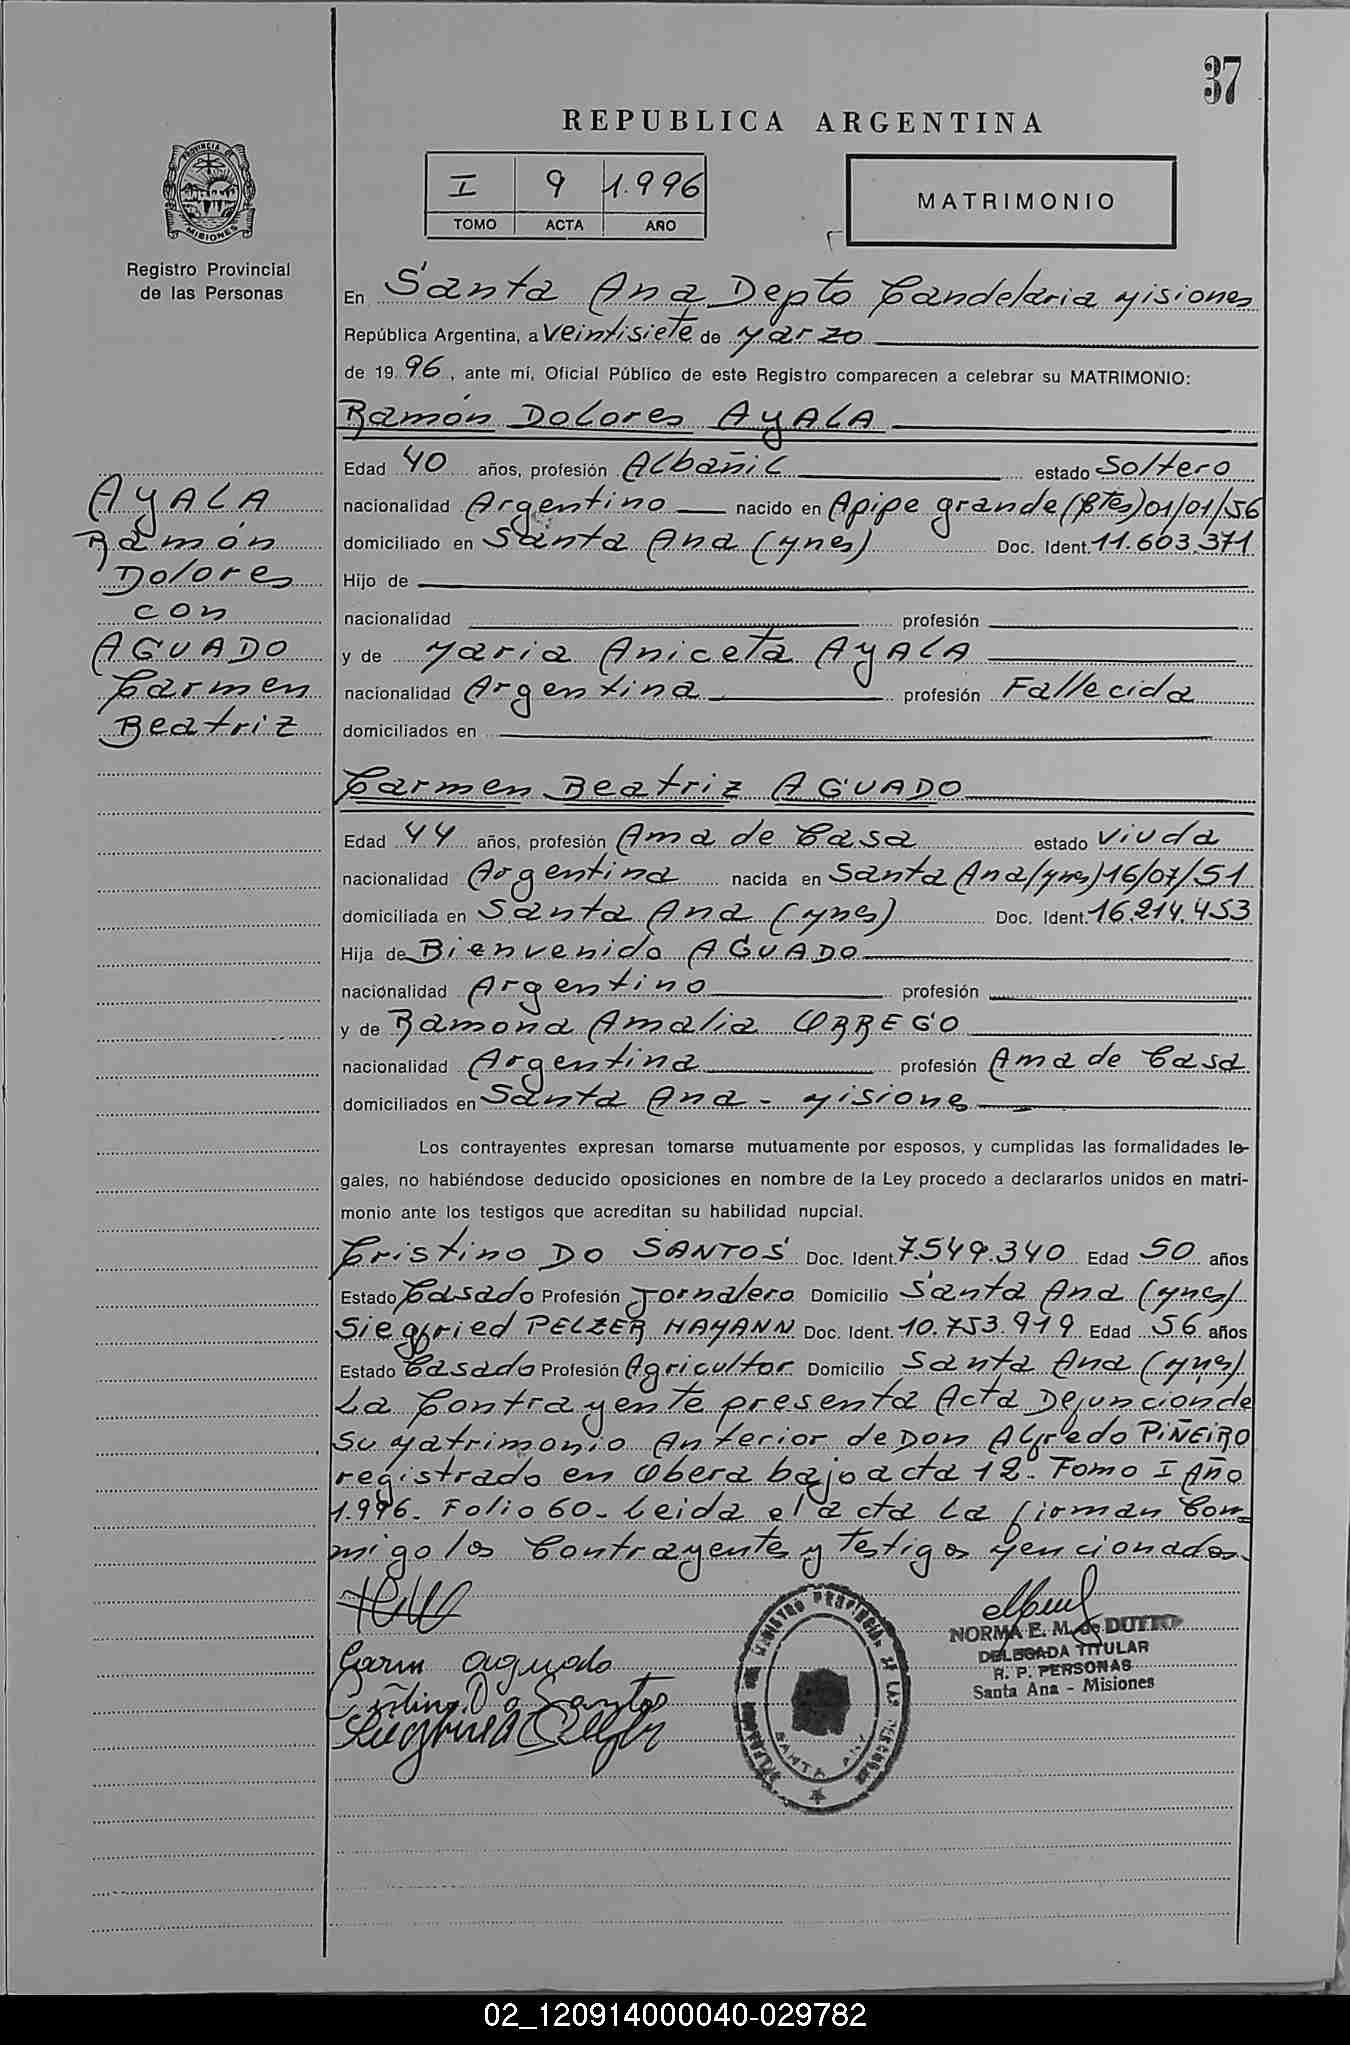 37
REPUBLICA ARGENTINA
I 9 1.996
TOMO ACTA AÑO
MATRIMONIO
PROVINCIA DE
MISIONES
Registro Provincial
de las Personas
En Santa Ana Depto Candelaria Misiones
República Argentina, a Veintisiete de Marzo
de 19 96, ante mí, Oficial Público de este Registro comparecen a celebrar su MATRIMONIO:
Ramón Dolores AYALA
Edad 40 años, profesión Albañil estado Soltero
nacionalidad Argentino nacido en Apipe grande (Ctes) 01/01/56
domiciliado en Santa Ana (Mnes) Doc. Ident. 11.603.371
Hijo de
nacionalidad profesión
y de Maria Aniceta AYALA
nacionalidad Argentina profesión Fallecida
domiciliados en
AYALA
Ramón
Dolores
con
AGUADO
Carmen
Beatriz
Carmen Beatriz AGUADO
Edad 44 años, profesión Ama de Casa estado Viuda
nacionalidad Argentina nacida en Santa Ana (Mnes) 16/07/51
domiciliada en Santa Ana (Mnes) Doc. Ident. 16.214.453
Hija de Bienvenido AGUADO
nacionalidad Argentino profesión
y de Ramona Amalia ORREGO
nacionalidad Argentina profesión Ama de Casa
domiciliados en Santa Ana - Misiones
Los contrayentes expresan tomarse mutuamente por esposos, y cumplidas las formalidades le-
gales, no habiéndose deducido oposiciones en nombre de la Ley procedo a declararlos unidos en matri-
monio ante los testigos que acreditan su habilidad nupcial.
Cristino DO SANTOS Doc. Ident. 7.549.340 Edad 50 años
Estado Casado Profesión Jornalero Domicilio Santa Ana (Mnes)
Siegfried PELZER HAMANN Doc. Ident. 10.753.919 Edad 56 años
Estado Casado Profesión Agricultor Domicilio Santa Ana (Mnes)
La Contrayente presenta Acta Defuncion de
su Matrimonio Anterior de Don Alfredo PIÑEIRO
registrado en Obera bajo acta 12. Tomo I Año
1.996. Folio 60. Leida el acta La firman Con=
migo los Contrayentes y Testigos Mencionados.
Carm aguado
Cristino Do Santos
NORMA E. M. de DUTTO
DELEGADA TITULAR
R. P. PERSONAS
Santa Ana - Misiones
REGISTRO PROVINCIAL DE LAS PERSONAS
SANTA ANA
02_120914000040-029782